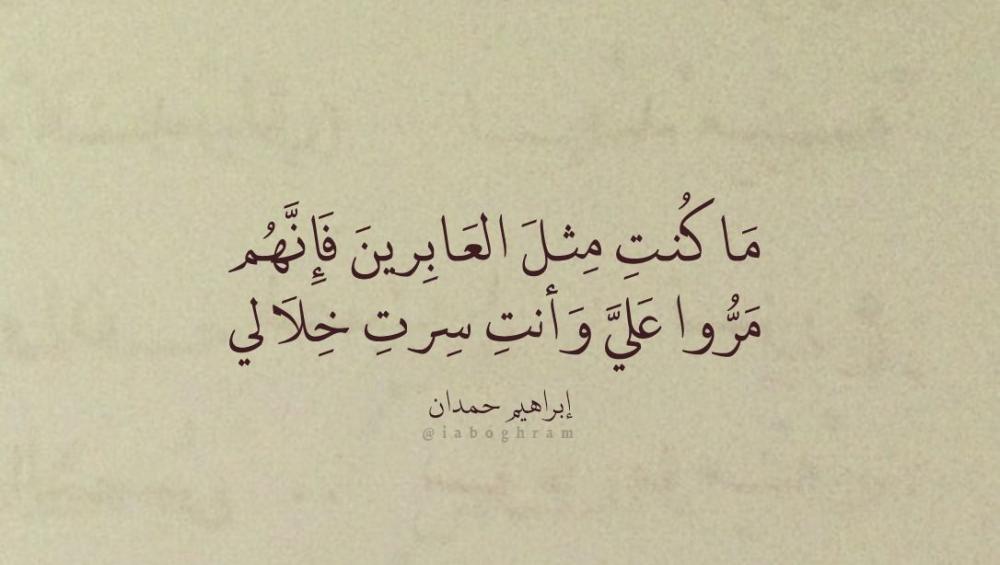 مَا كُنتِ مِثلَ العَابِرينَ فَإِنَّهُم
مَرُّوا عَليَّ وَأنتِ سِرتِ خِلَالي
إبراهيم حمدان
@iaboghram